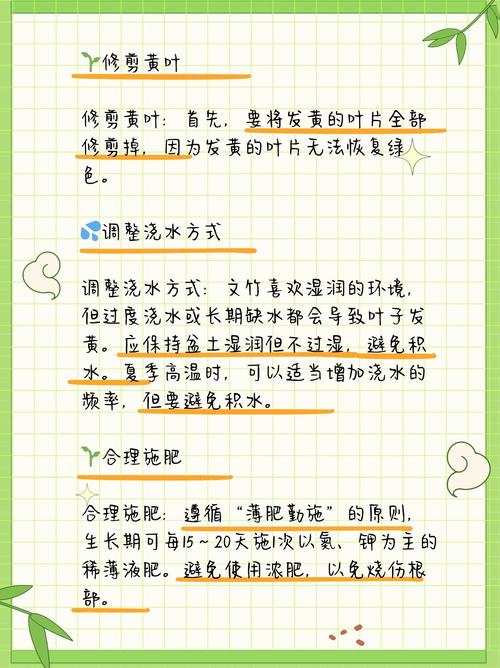 修剪黄叶
修剪黄叶：首先，要将发黄的叶片全部
修剪掉，因为发黄的叶片无法恢复绿
色。
调整浇水方式
调整浇水方式：文竹喜欢湿润的环境，
但过度浇水或长期缺水都会导致叶子发
黄。应保持盆土湿润但不过湿，避免积
水。夏季高温时，可以适当增加浇水的
频率，但要避免积水。
合理施肥
合理施肥：遵循“薄肥勤施”的原则，
生长期可每15～20天施1次以氮、钾为主的
稀薄液肥。避免使用浓肥，以免烧伤根
部。